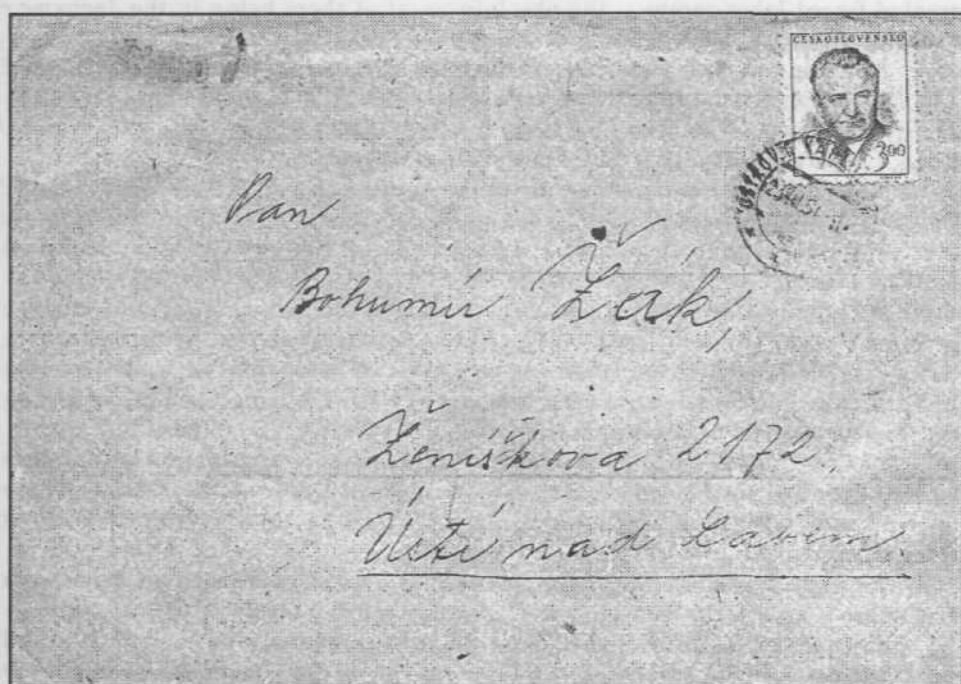 ČESKOSLOVENSKO
3,00
Pan
Bohumír Žák,
Ženíškova 2172.
Ústí nad Labem.